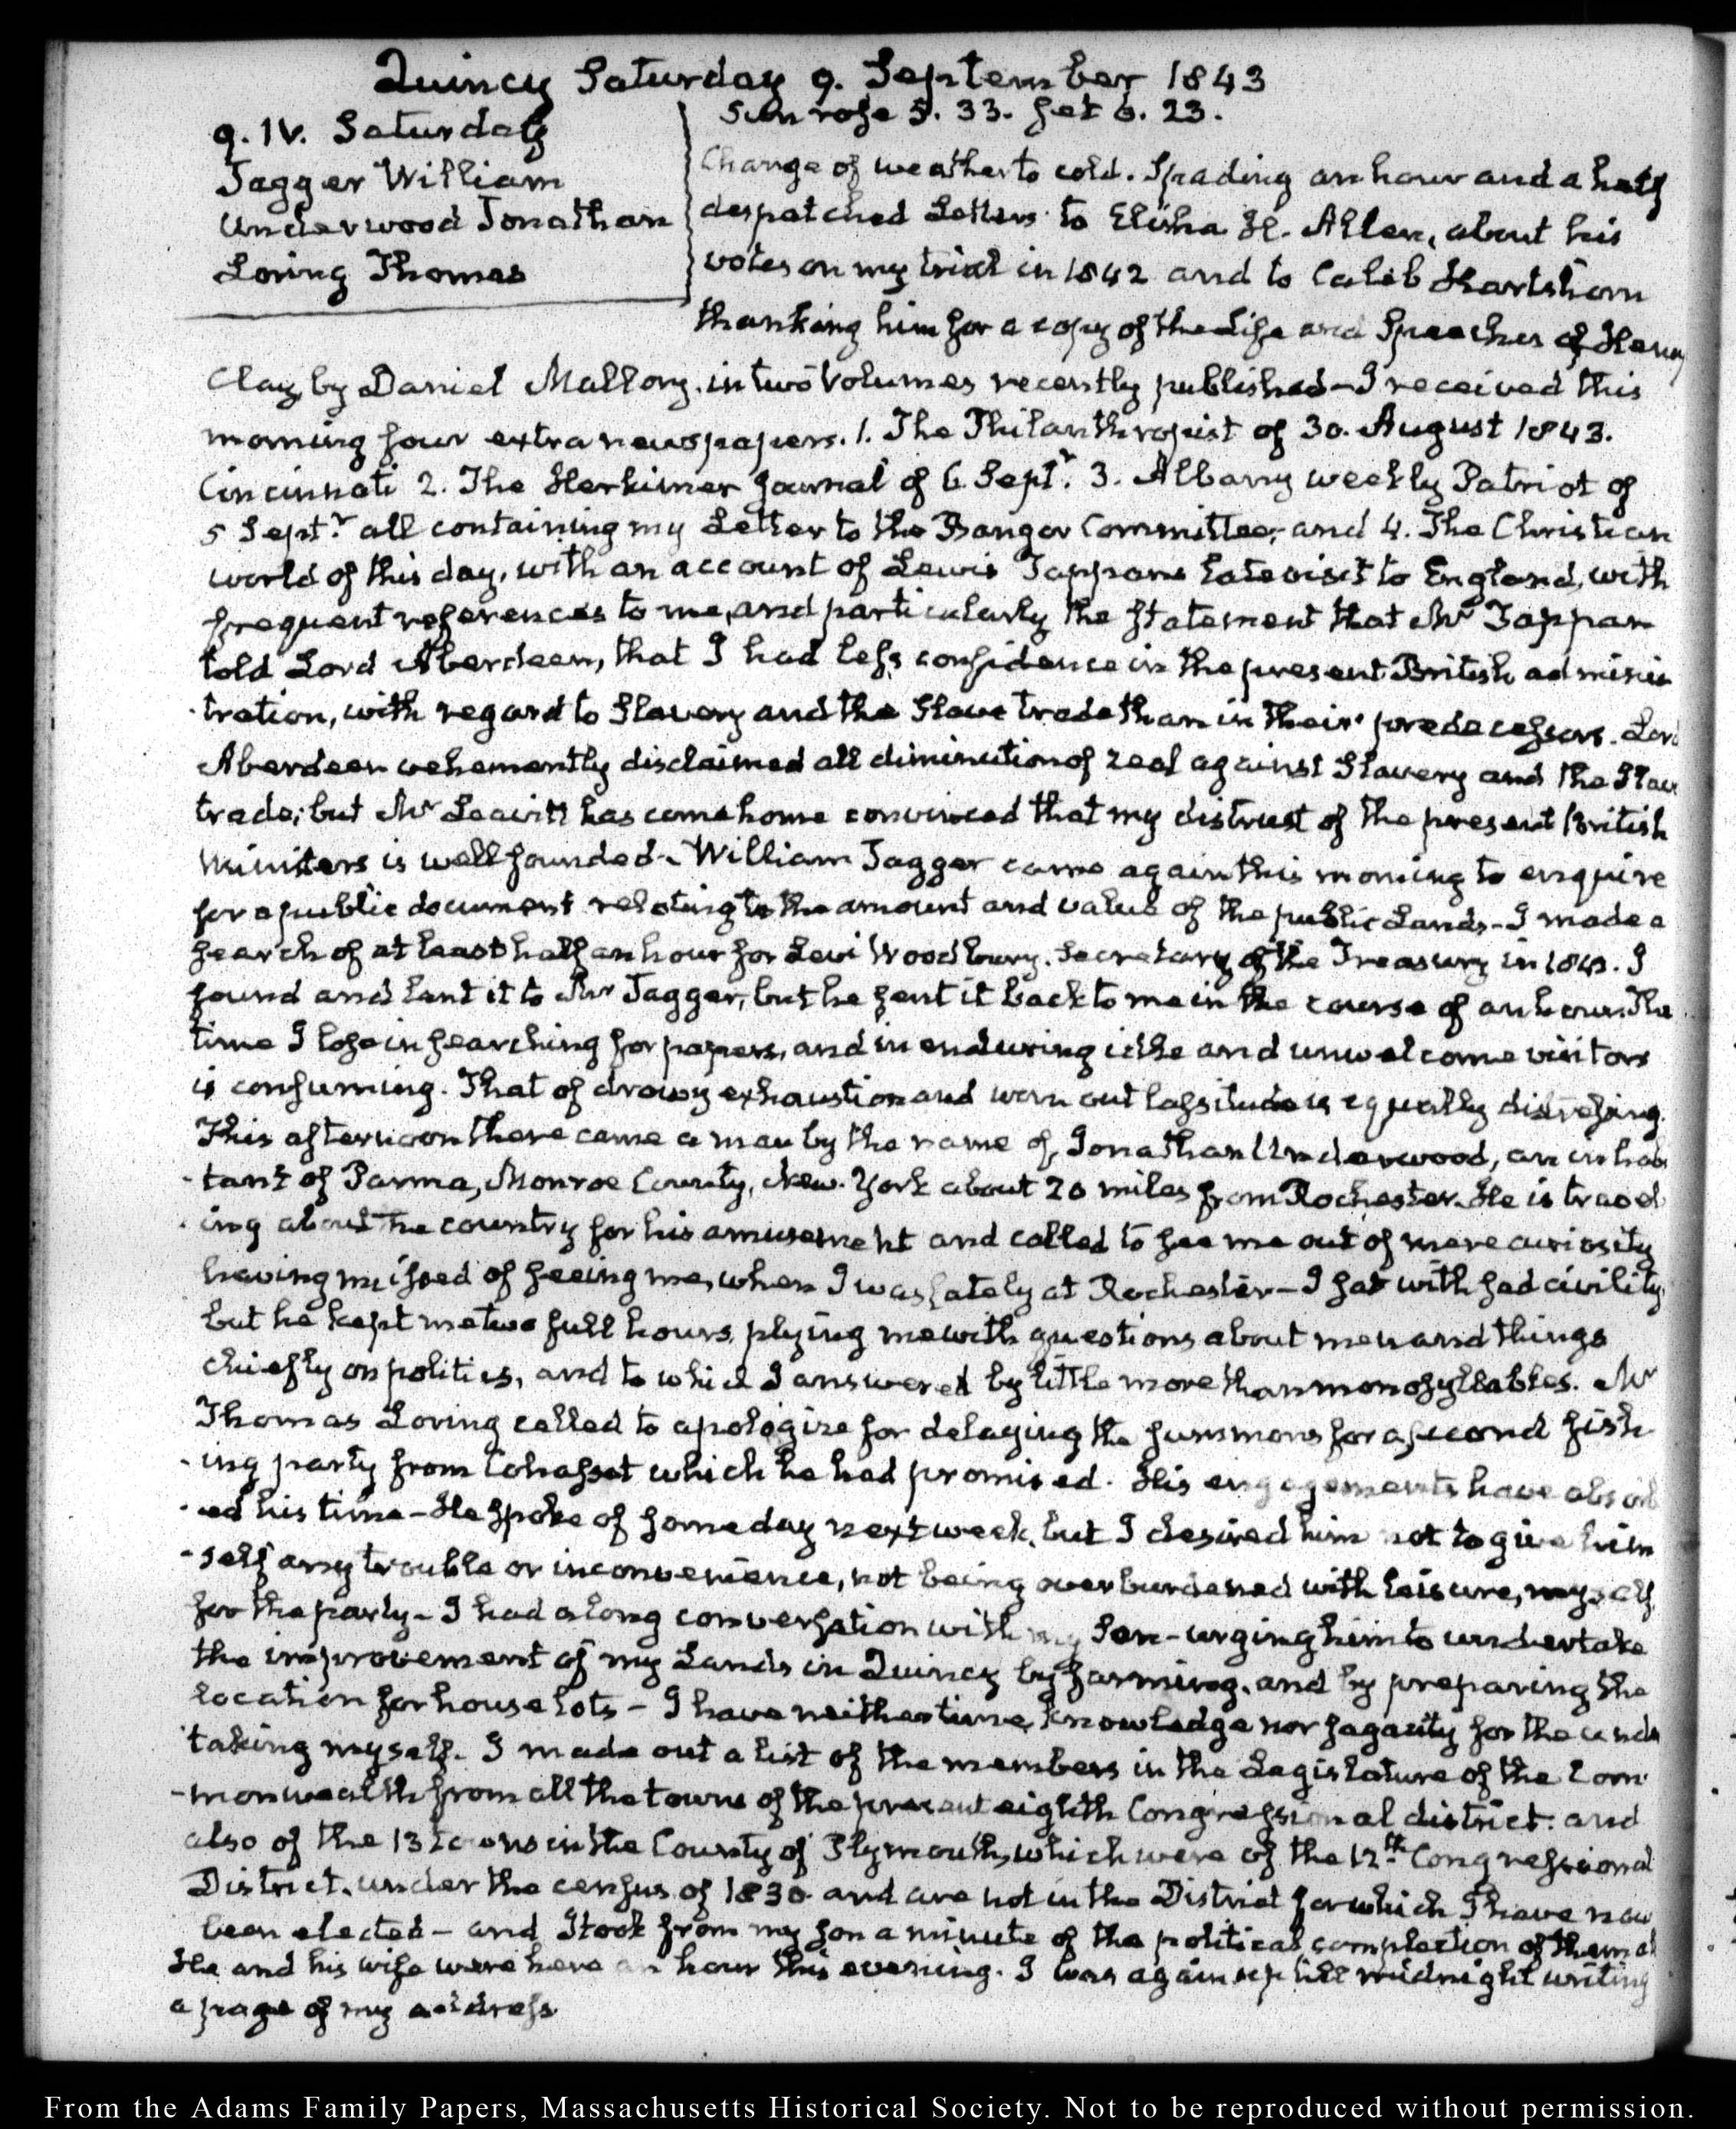 Quincy Saturday 9. September 1843
9. IV. Saturday
Jagger William
Underwood Jonathan
Loring Thomas
Sun rose 5. 33. set 6. 23.
Change of weather to cold. Spading an hour and a half
despatched Letters to Elisha H. Allen, about his
votes on my trial in 1842 and to Caleb Hartshorn
thanking him for a copy of the Life and Speeches of Henry
Clay, by Daniel Mallory, in two Volumes recently published – I received this
morning four extra newspapers. 1. The Philanthropist of 30. August 1843.
Cincinnati 2. The Herkimer Journal of 6 Septr. 3. Albany weekly Patriot of
5 Septr. all containing my Letter to the Bangor Committee, and 4. The Christian
world of this day, with an account of Lewis Tappans late visit to England, with
frequent references to me, and particularly the statement that Mr Tappan
told Lord Aberdeen, that I had less confidence in the present British adminis
-tration, with regard to Slavery and the Slave trade than in their predecessors. Lord
Aberdeen vehemently disclaimed all diminution of zeal against Slavery and the Slave
trade; but Mr Leavitt has come home convinced that my distrust of the present British
Ministers is well founded – William Jagger came again this morning to enquire
for a public document relating to the amount and value of the public Lands – I made a
search of at least half an hour for Levi Woodbury. Secretary of the Treasury in 1840. I
found and lent it to Mr Jagger, but he sent it back to me in the course of an hour. The
time I lose in searching for papers, and in enduring idle and unwelcome visitors
is consuming. That of drowzy exhaustion and worn out lassitude is equally distressing.
This afternoon there came a man by the name of Jonathan Underwood, an inhabi
-tant of Parma, Monroe County, New-York about 20 miles from Rochester. He is travel
-ing about the country for his amusement and called to see me out of mere curiosity
having missed of seeing me, when I was lately at Rochester – I sat with sad civility
but he kept me two full hours, plying me with questions about men and things
chiefly on politics, and to which I answered by little more than monosyllables. Mr
Thomas Loring called to apologize for delaying the summons for a second fish-
-ing party from Cohasset which he had promised. His engagements have absorb
-ed his time – He spoke of some day next week, but I desired him not to give him
-self any trouble or inconvenience, not being overburdened with leisure, myself
for the party – I had a long conversation with my Son – urging him to undertake
the improvement of my Lands in Quincy by farming, and by preparing the
location for house lots – I have neither time, knowledge nor sagacity for the under
taking myself. I made out a list of the members in the Legislature of the Com-
-monwealth from all the towns of the present eighth Congressional district: and
also of the 13 towns in the County of Plymouth, which were of the 12th Congressional
District, under the census of 1830 and are not in the District for which I have now
been elected – and I took from my son a minute of the political complection of them all
He and his wife were here an hour this evening. I was again up till midnight writing
a page of my address
From the Adams Family Papers, Massachusetts Historical Society. Not to be reproduced without permission.